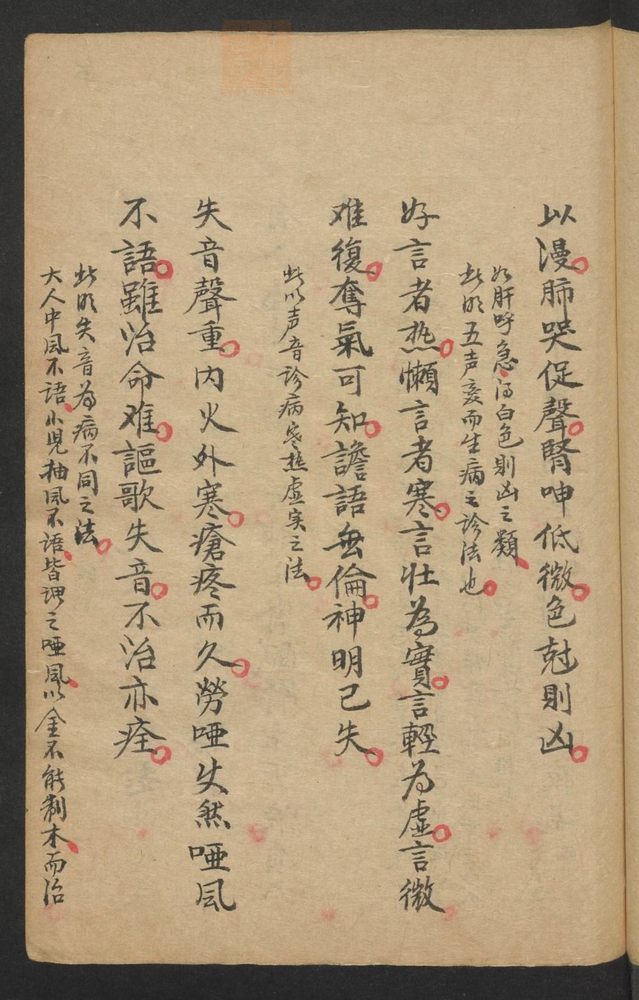 以漫肺哭促聲腎呻低微色尅則凶
如肝呼急淂白色則凶之類
此明五声变而生病之診法也
好言者热懶言者寒言壮為實言輕為虛言微
难復奪氣可知譫語無倫神明已失
此以声音診病寒热虚实之法
失音聲重内火外寒瘡疼而久勞啞使然啞風
不語雖治命难謳歌失音不治亦痊
此明失音為病不同之法
大人中風不語小児抽風不語皆謂之啞風以金不能制木而治